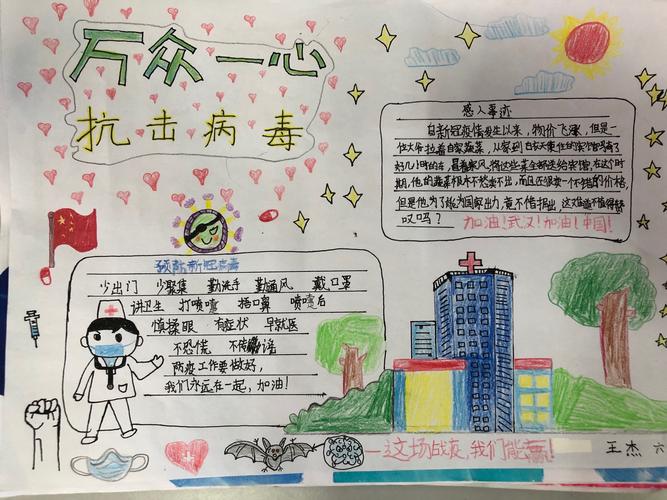 万众一心
抗击病毒
感人事迹
自新冠疫情发生以来，物价飞涨，但是一
位大爷拉着自家蔬菜，从家到
好几小时的车，冒着寒风，将这些菜全部送给宾馆，在这个时
期，他的蔬菜根本不愁卖不出，而且还能卖一个不错的价格，
但是他，为了能为国家出力，竟不惜捐出，这难道不值得赞
叹吗？
加油！武汉！加油！中国！
预防新冠病毒
少出门 少聚集 勤洗手 勤通风 戴口罩
讲卫生 打喷嚏 捂口鼻 喷嚏后
慎揉眼 有症状 早就医
不恐慌 不传谣
防疫工作要做好，
我们永远在一起，加油！
这场战疫，我们能赢！
王杰 六